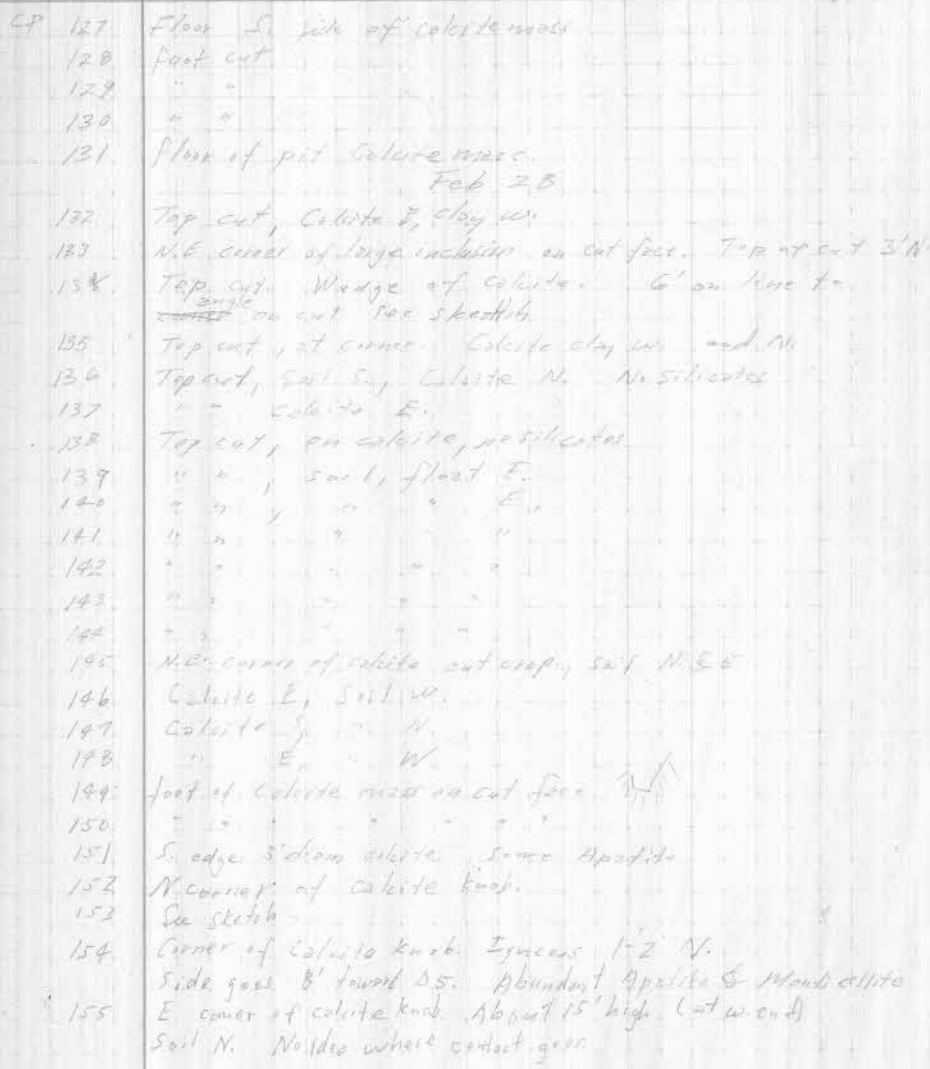 CP 127 Floor S. side of calcite mass
128 foot cut
129 " "
130 " "
131 floor of pit Calcite mass.
Feb 28
132 Top cut, Calcite E, clay W.
133 N.E. corner of large inclusion on cut face. Top of cut 3' N.
134 Top cut. Wedge of calcite. 6' on line to
angle on cut see sketch
135 Top cut, at corner. Calcite clay W. and N.
136 Top cut, soil S., Calcite N. No silicates
137 " " Calcite E.
138 Top cut, on calcite, no silicates
139 " " , soil, float E.
140 " " , " " E.
141 " " " "
142 " " " "
143 " " " " "
144 " " " "
145 N.E. corner of calcite outcrop, soil N. & E
146 Calcite E, Soil W.
147 Calcite S, " N.
148 " E, " W
149 foot of Calcite mass on cut face
150 " " " " " "
151 S. edge 3' diam calcite Some Apatite
152 N corner of calcite knob.
153 See sketch
154 Corner of Calcite knob. Igneous 1-2' N.
Side goes 8' toward Δ5. Abundant Apatite & Monticellite
155 E corner of calcite knob. About 15' high (at W end)
Soil N. No idea where contact goes.